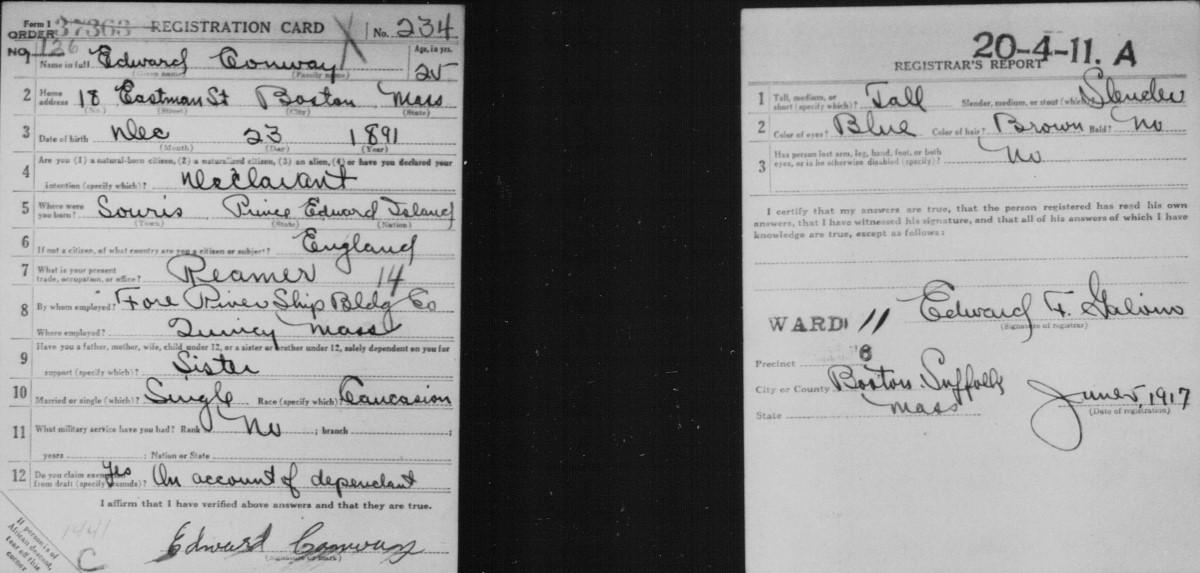 Form 1 37363 REGISTRATION CARD X No. 234
ORDER
NO. 1126
1 Name in full Edward Conway Age, in yrs. 25
(Given name) (Family name)
2 Home address 18 Eastman St Boston Mass
(No.) (Street) (City) (State)
3 Date of birth Dec 23 1891
(Month) (Day) (Year)
Are you (1) a natural-born citizen, (2) a naturalized citizen, (3) an alien, (4) or have you declared your
4 intention (specify which)? Declarant
5 Where were you born? Souris Prince Edward Island
(Town) (State) (Nation)
6 If not a citizen, of what country are you a citizen or subject? England
7 What is your present trade, occupation, or office? Reamer 14
8 By whom employed? Fore River Ship Bldg Co
Where employed? Quincy Mass
Have you a father, mother, wife, child under 12, or a sister or brother under 12, solely dependent on you for
9 support (specify which)? Sister
10 Married or single (which)? Single Race (specify which)? Caucasion
11 What military service have you had? Rank No ; branch ;
years ; Nation or State
12 Do you claim exemption from draft (specify grounds)? Yes On account of dependant
I affirm that I have verified above answers and that they are true.
1441
C
Edward Conway
If person is of
African descent,
tear off this
corner
20-4-11. A
REGISTRAR'S REPORT
1 Tall, medium, or short (specify which)? Tall Slender, medium, or stout (which)? Slender
2 Color of eyes? Blue Color of hair? Brown Bald? No
3 Has person lost arm, leg, hand, foot, or both eyes, or is he otherwise disabled (specify)? No
I certify that my answers are true, that the person registered has read his own
answers, that I have witnessed his signature, and that all of his answers of which I have
knowledge are true, except as follows:
Edward F. Galvin
WARD 11
(Signature of registrar)
Precinct 8
City or County Boston Suffolk
State Mass
June 5, 1917
(Date of registration)